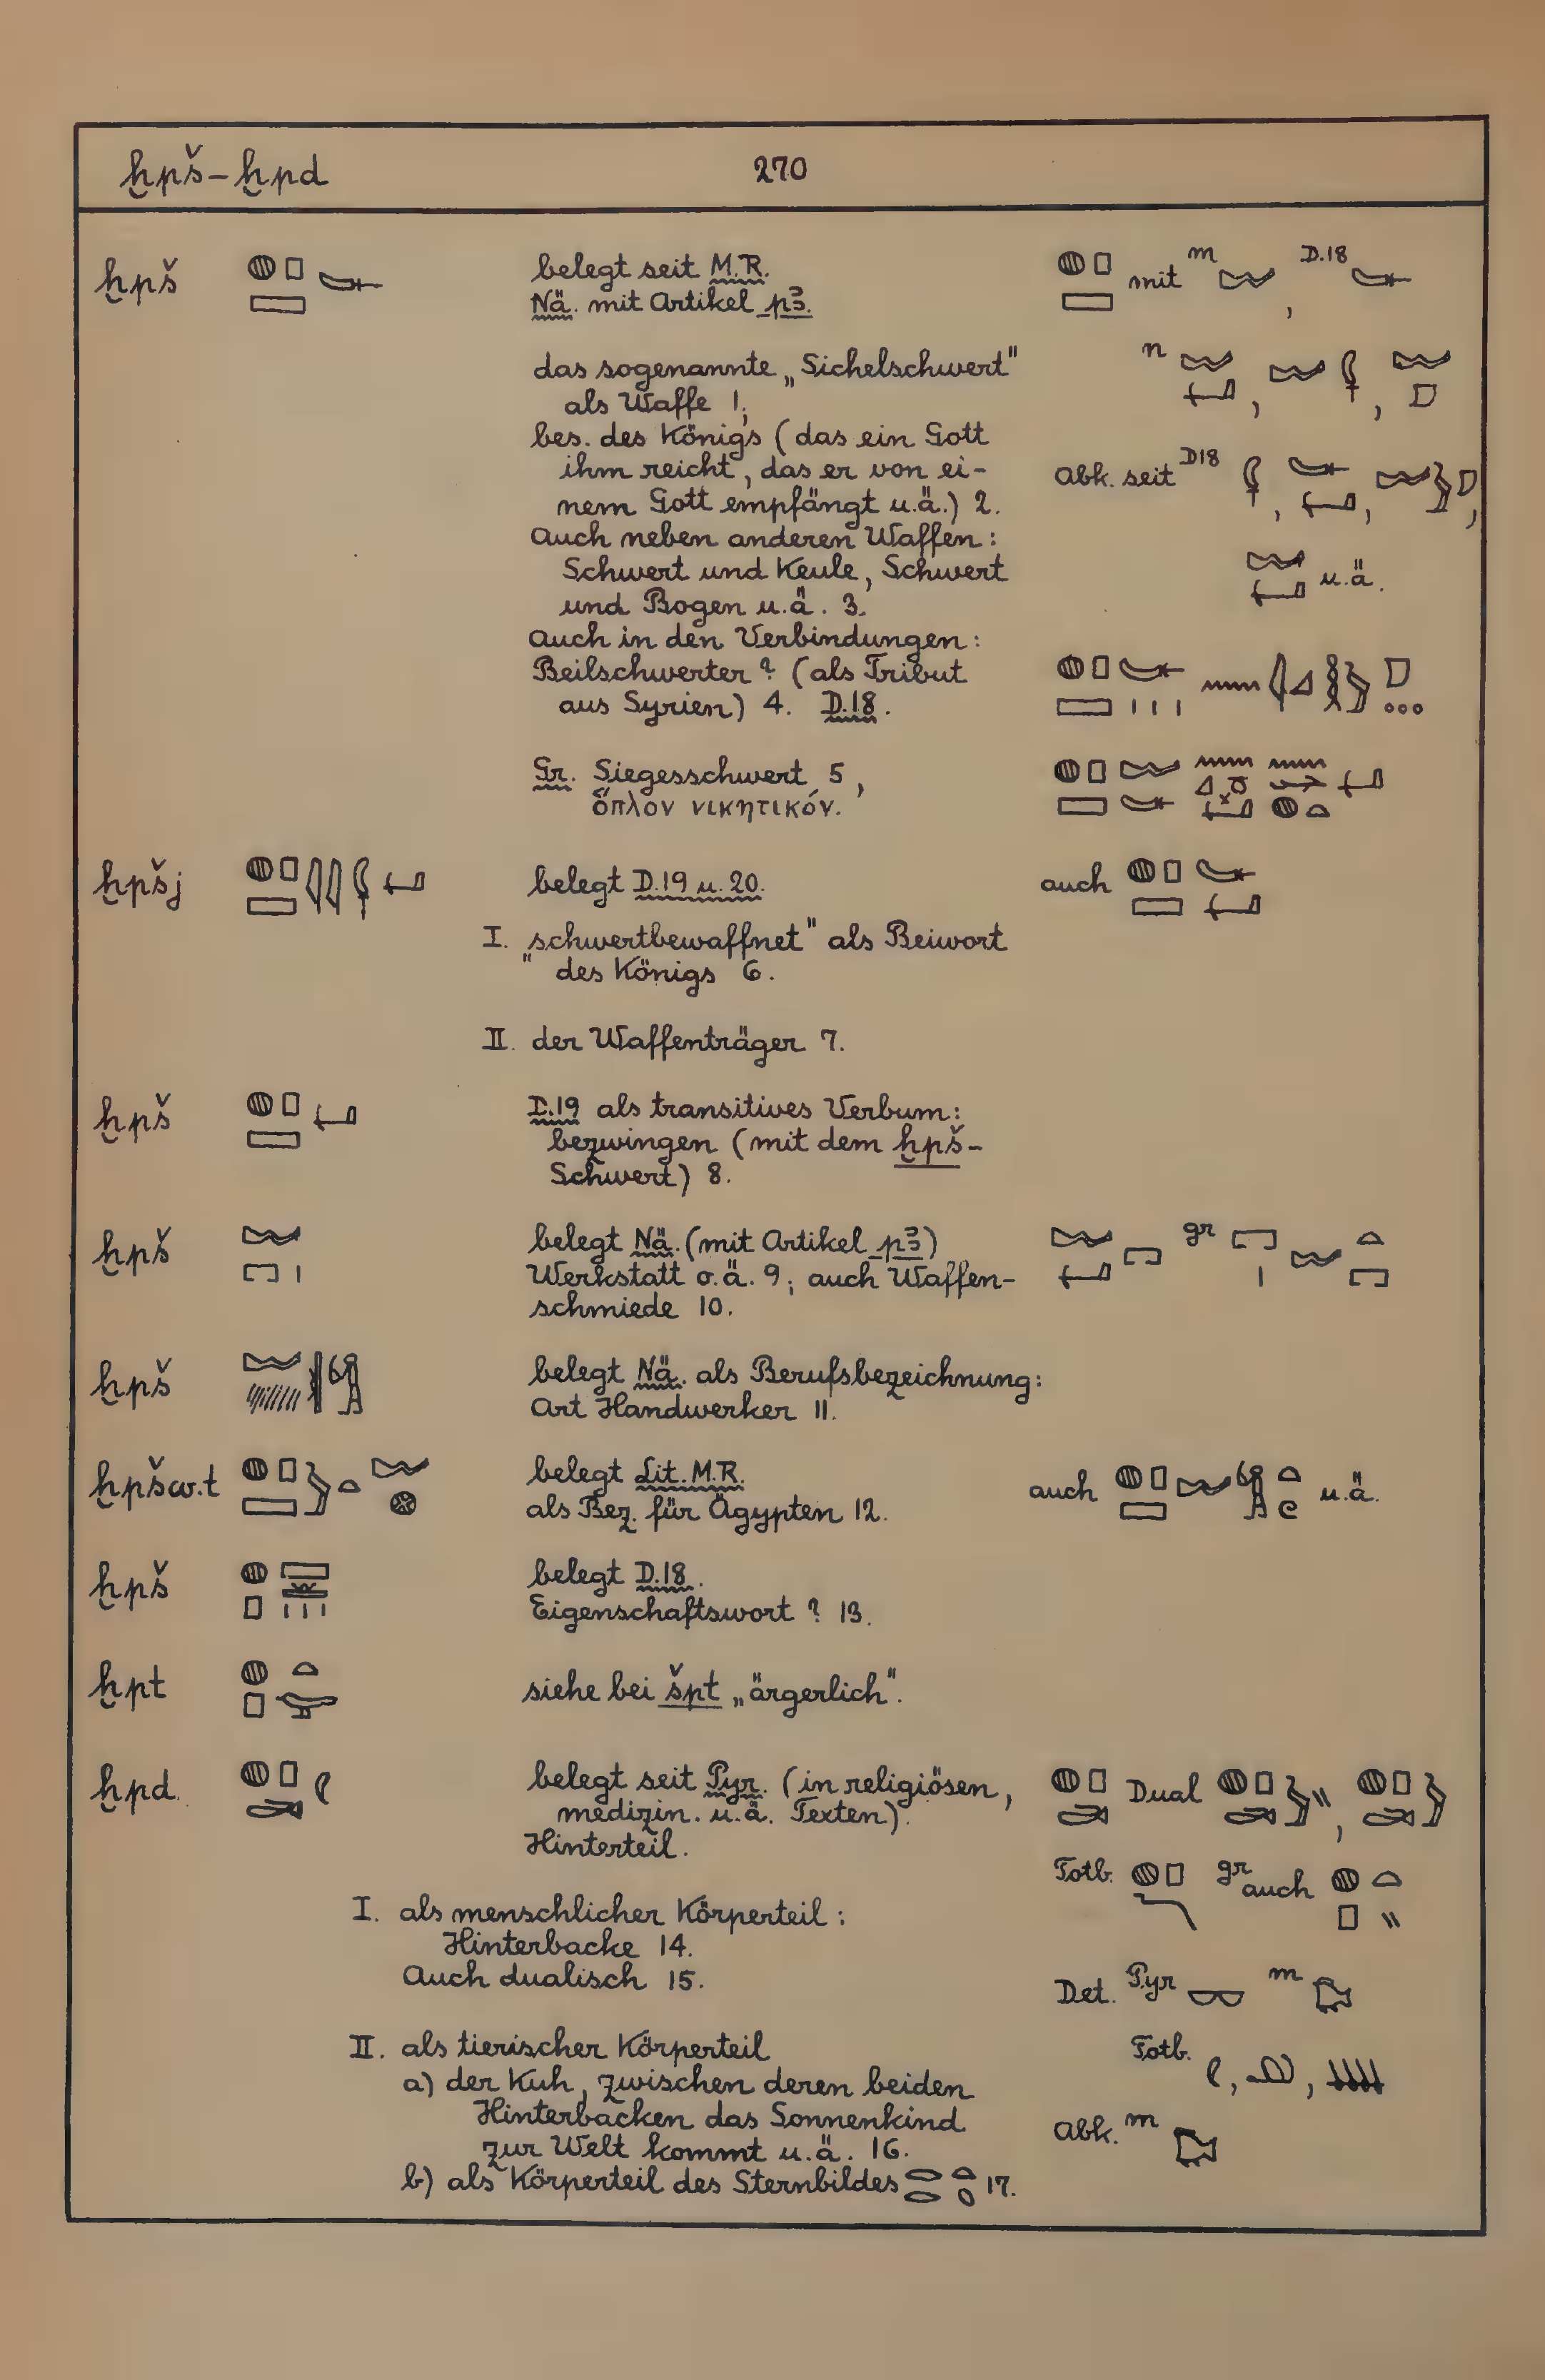 ḫpš – ḫpd 270
ḫpš belegt seit M.R. mit m D.18
Nä. mit Artikel pꜣ. ,
das sogenannte „Sichelschwert" n
als Waffe 1; , ,
bes. des Königs (das ein Gott
ihm reicht, das er von ei- Abk. seit D18 , , ,
nem Gott empfängt u.ä.) 2.
Auch neben anderen Waffen:
Schwert und Keule, Schwert u.ä.
und Bogen u.ä. 3.
Auch in den Verbindungen:
Beilschwerter? (als Tribut
aus Syrien) 4. D.18.
Gr. Siegesschwert 5,
ὅπλον νικητικόν.
ḫpšj belegt D.19 u. 20. auch
I. „schwertbewaffnet" als Beiwort
des Königs 6.
II. der Waffenträger 7.
ḫpš D.19 als transitives Verbum:
bezwingen (mit dem ḫpš-
Schwert) 8.
ḫpš belegt Nä. (mit Artikel pꜣ) gr
Werkstatt o.ä. 9; auch Waffen-
schmiede 10.
ḫpš belegt Nä. als Berufsbezeichnung:
Art Handwerker 11.
ḫpšw.t belegt Lit. M.R. auch u.ä.
als Bez. für Ägypten 12.
ḫpš belegt D.18.
Eigenschaftswort? 13.
ḫpt siehe bei špt „ärgerlich".
ḫpd. belegt seit Pyr. (in religiösen, Dual ,
medizin. u.ä. Texten).
Hinterteil.
Totb. gr auch
I. als menschlicher Körperteil:
Hinterbacke 14.
Auch dualisch 15.
Det. Pyr m
II. als tierischer Körperteil Totb. , ,
a) der Kuh, zwischen deren beiden
Hinterbacken das Sonnenkind Abk. m
zur Welt kommt u.ä. 16.
b) als Körperteil des Sternbildes 17.